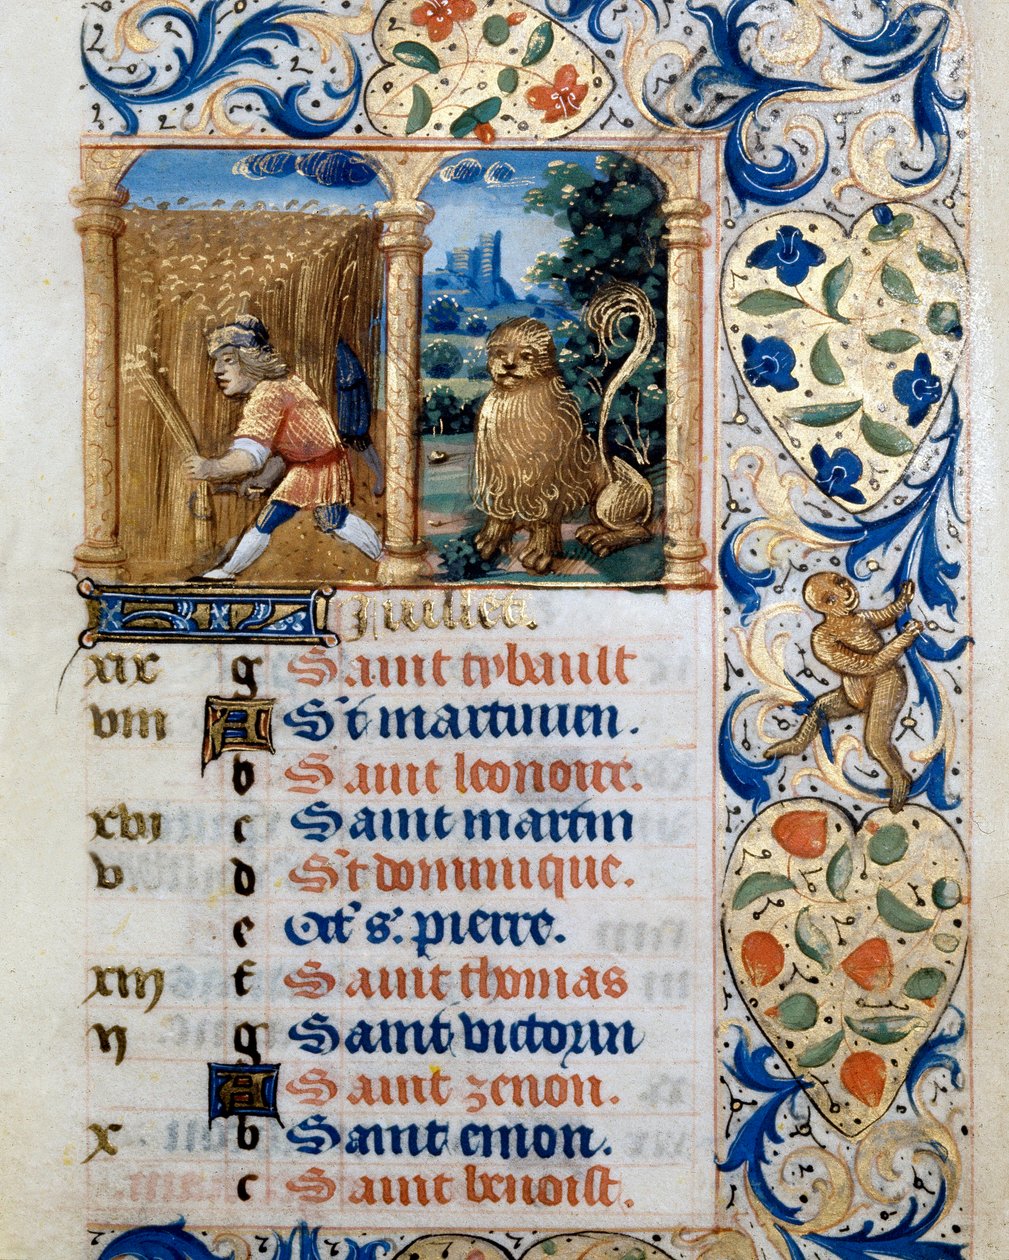 Juillet.
xix g Saint tybault
viii A St martinien.
b Saint leonorre.
xvi c Saint martin
v. d St dominique.
e Oct s. pierre.
xiii f Saint thomas
ii g Saint victorin
A Saint zenon.
x b Saint emon.
c Saint benoist.